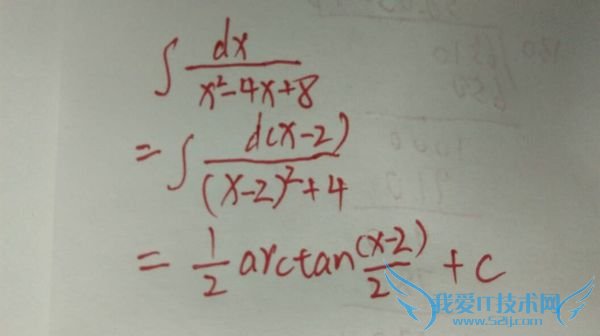 ∫ dx / x²-4x+8
= ∫ d(x-2) / (x-2)²+4
= 1/2 arctan (x-2)/2 + C
我爱IT技术网
www.52ij.com